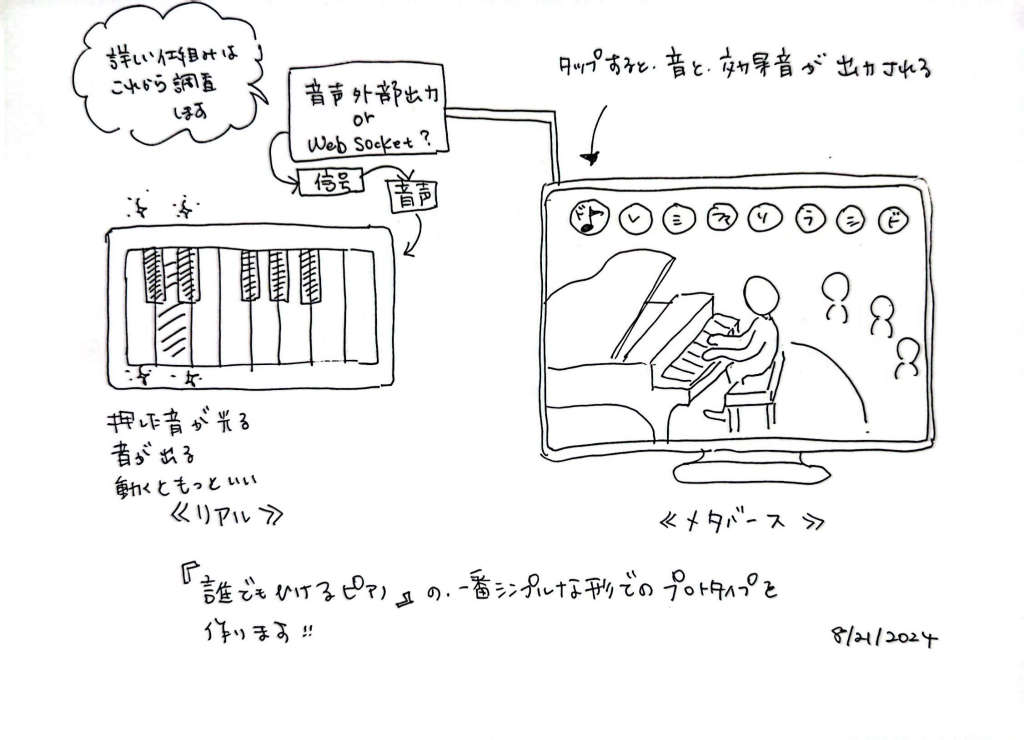 詳しい仕組みは
これから調査
します
音声外部出力
or
Web Socket?
信号
音声
タップすると、音と、効果音が出力される
ド レ ミ ファ ソ ラ シ ド
押した音が光る
音が出る
動くともっといい
≪リアル≫
≪メタバース≫
『誰でもひけるピアノ』の、一番シンプルな形でのプロトタイプを
作ります!!
8/21/2024